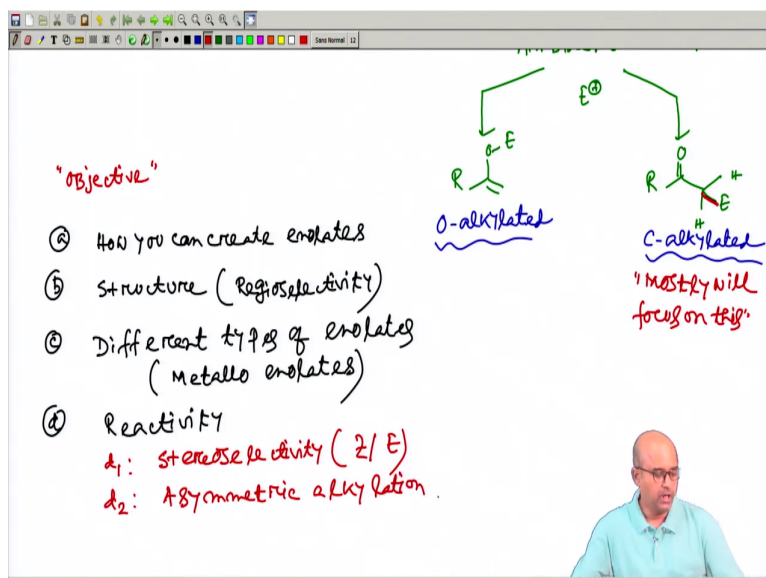 Sans Normal 12
E⊕
O-E
R
O
R
H
E
H
"Objective"
O-alkylated
C-alkylated
"Mostly will
focus on this"
ⓐ How you can create enolates
ⓑ Structure (Regioselectivity)
ⓒ Different types of enolates
(Metallo enolates)
ⓓ Reactivity
d₁: Stereoselectivity (Z/E)
d₂: Asymmetric alkylation.